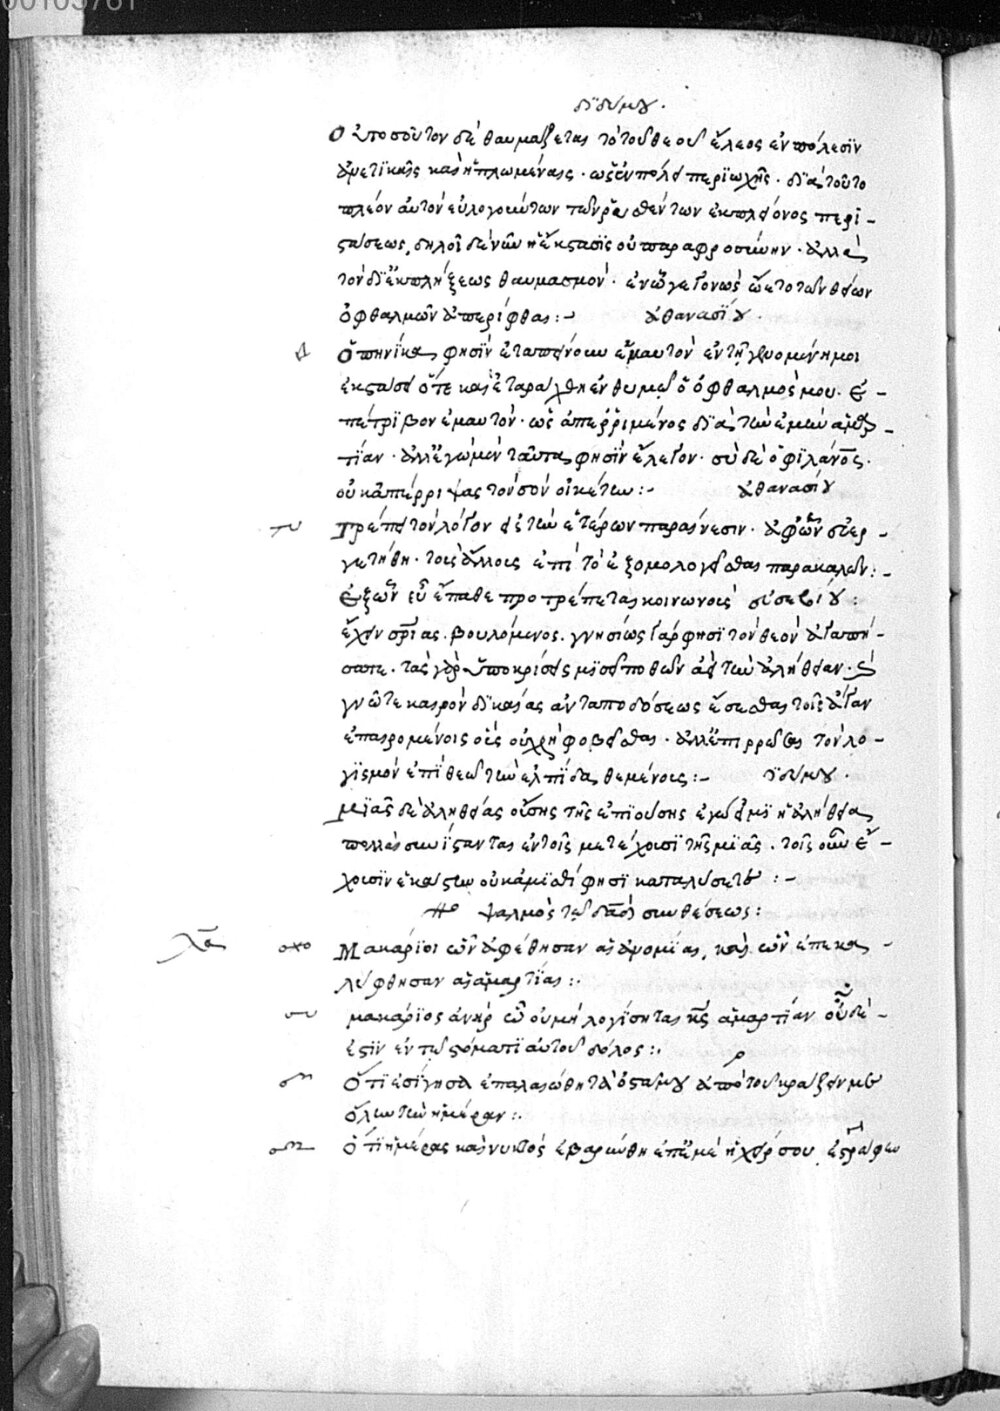 00105761
διδύμου.
Ὁ ἐπὶ τοσοῦτον δὲ θαυμάζεται τὸ τοῦ θεοῦ ἔλεος ἐν πόλεσιν
ἀρετικαῖς καὶ ἡπλωμέναις. ὡς ἐν πόλει περιοχῆς. διὰ τοῦτο
πλέον αὐτὸν εὐλογούντων τῶν ῥυσθέντων ἐκ πλείονος περι-
στάσεως. δηλοῖ δὲ νῦν ἡ ἔκστασις οὐ παραφροσύνην. ἀλλὰ
τὸν δι' ἐκπλήξεως θαυμασμόν. ἐν ᾧ γεγονὼς ᾤετο τῶν θείων
ὀφθαλμῶν ἀπερίφθαι:- ἀθανασίου.
Ὁπηνίκα φησὶν ἐταπείνουν ἐμαυτὸν ἐν τῇ γενομένῃ μοι
ἐκστάσει ὅτε καὶ ἐταράχθη ἐν θυμῷ ὁ ὀφθαλμός μου.
πέτριβον ἐμαυτὸν. ὡς ἀπερριμένος διὰ τὴν ἐμὴν ἁμαρ-
τίαν. ἀλλ' ἐγὼ μὲν ταῦτα φησὶν ἔλεγον. σὺ δὲ ὁ φιλάνος.
οὐκ ἀπέρριψας τὸν σὸν οἰκέτην:- ἀθανασίου
Τρέπει τὸν λόγον εἰς τὴν ἑτέρων παραίνεσιν. ἀφ' ὧν εὐερ-
γετήθη. τοῖς ἄλλοις ἐπὶ τὸ ἐξομολογεῖσθαι παρακαλῶν:-
ἐξ ὧν εὖ ἔπαθε προτρέπεται κοινωνοὺς εὐσεβίου:
ἔχειν σρίας. βουλόμενος. γνησίως γάρ φησι τὸν θεὸν ἀγαπή-
σατε. τὰς γὰρ ὑποκρίσεις μισεῖ ποθῶν ἀεὶ τὴν ἀλήθειαν.
γνῶτε καιρὸν δικαίας ἀνταποδόσεως ἔσεσθαι τοῖς ἄγαν
ἐπαιρομένοις οὓς οὐ χρὴ φοβεῖσθαι. ἀλλ' ἐπιρρωσθαι τὸν λο-
γισμὸν ἐπὶ θεῷ τὴν ἐλπίδα θεμένους:- διδύμου.
μιᾶς δὲ ἀληθείας οὔσης τῆς ἐπιούσης ἐγώ εἰμι ἡ ἀλήθεια
πολλὰς συνίστανται ἐν τοῖς μετέχουσι τῆς μιᾶς. τοῖς οὖν ἔ-
χουσιν ἑκάστῳ οὐκ ἀμισθί φησι καταλύσεται:-
ψαλμὸς τῷ δαδ συνέσεως:
λα Μακάριοι ὧν ἀφέθησαν αἱ ἀνομίαι, καὶ ὧν ἐπεκα-
λύφθησαν αἱ ἁμαρτίαι:.
μακάριος ἀνὴρ ᾧ οὐ μὴ λογίσηται κς ἁμαρτίαν οὐδέ-
ἐστιν ἐν τῷ στόματι αὐτοῦ δόλος:.
Ὅτι ἐσίγησα ἐπαλαιώθη τὰ ὀστᾶ μου ἀπὸ τοῦ κράζειν με
ὅλην τὴν ἡμέραν:.
Ὅτι ἡμέρας καὶ νυκτὸς ἐβαρύνθη ἐπ' ἐμὲ ἡ χείρ σου, ἐστράφην